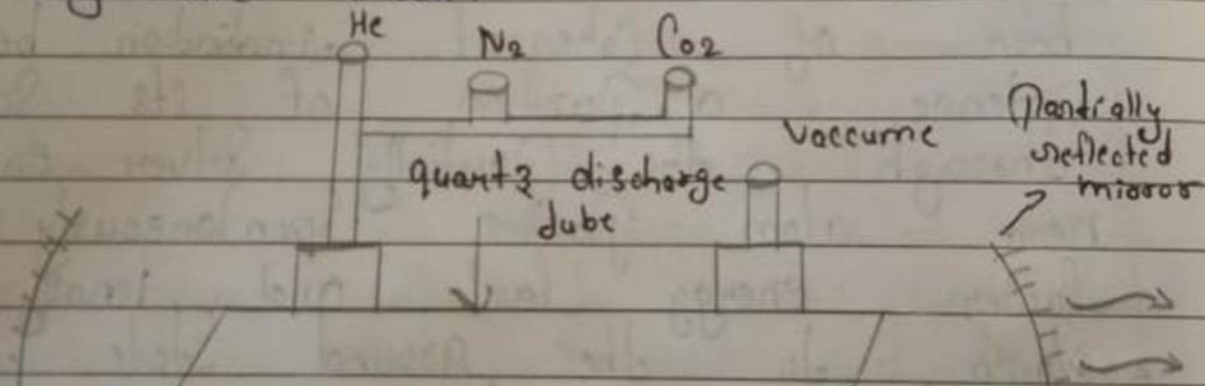 He
N2
Co2
Vaccume
Partially
reflected
mirror
quartz discharge
tube